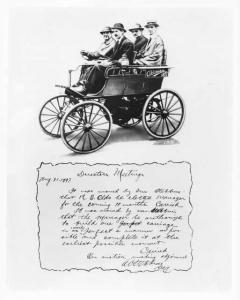 Directors Meeting
Aug. 21-1897
It was moved by Mr Stebbins
that R. E. Olds be elected Manager
for the coming 11 months. Carried
It was moved by Mr Stebbins
that the Manager be authorized
to build one perfect carriage
in as perfect a manner as pos-
sible and complete it at the
earliest possible moment.
Carried
On motion meeting adjourned
Secy